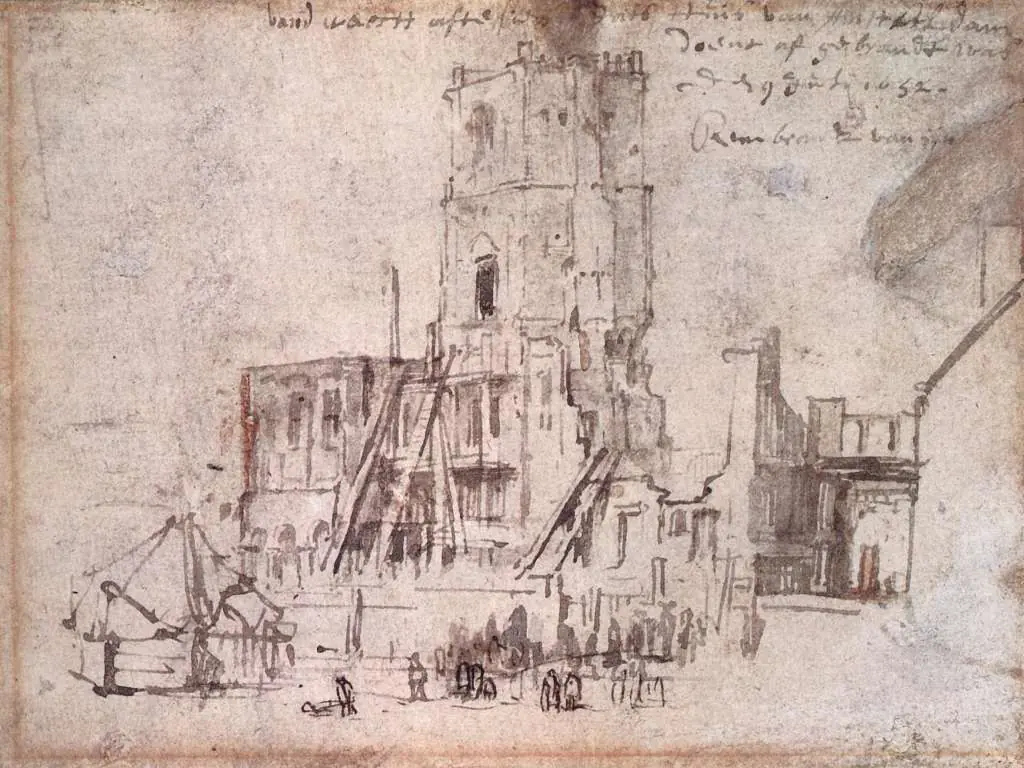 vand waech afte sien stats Huis van Amsteldam
doent af gebrandt was
den 9 Julij 1652.
Rembrandt van rijn